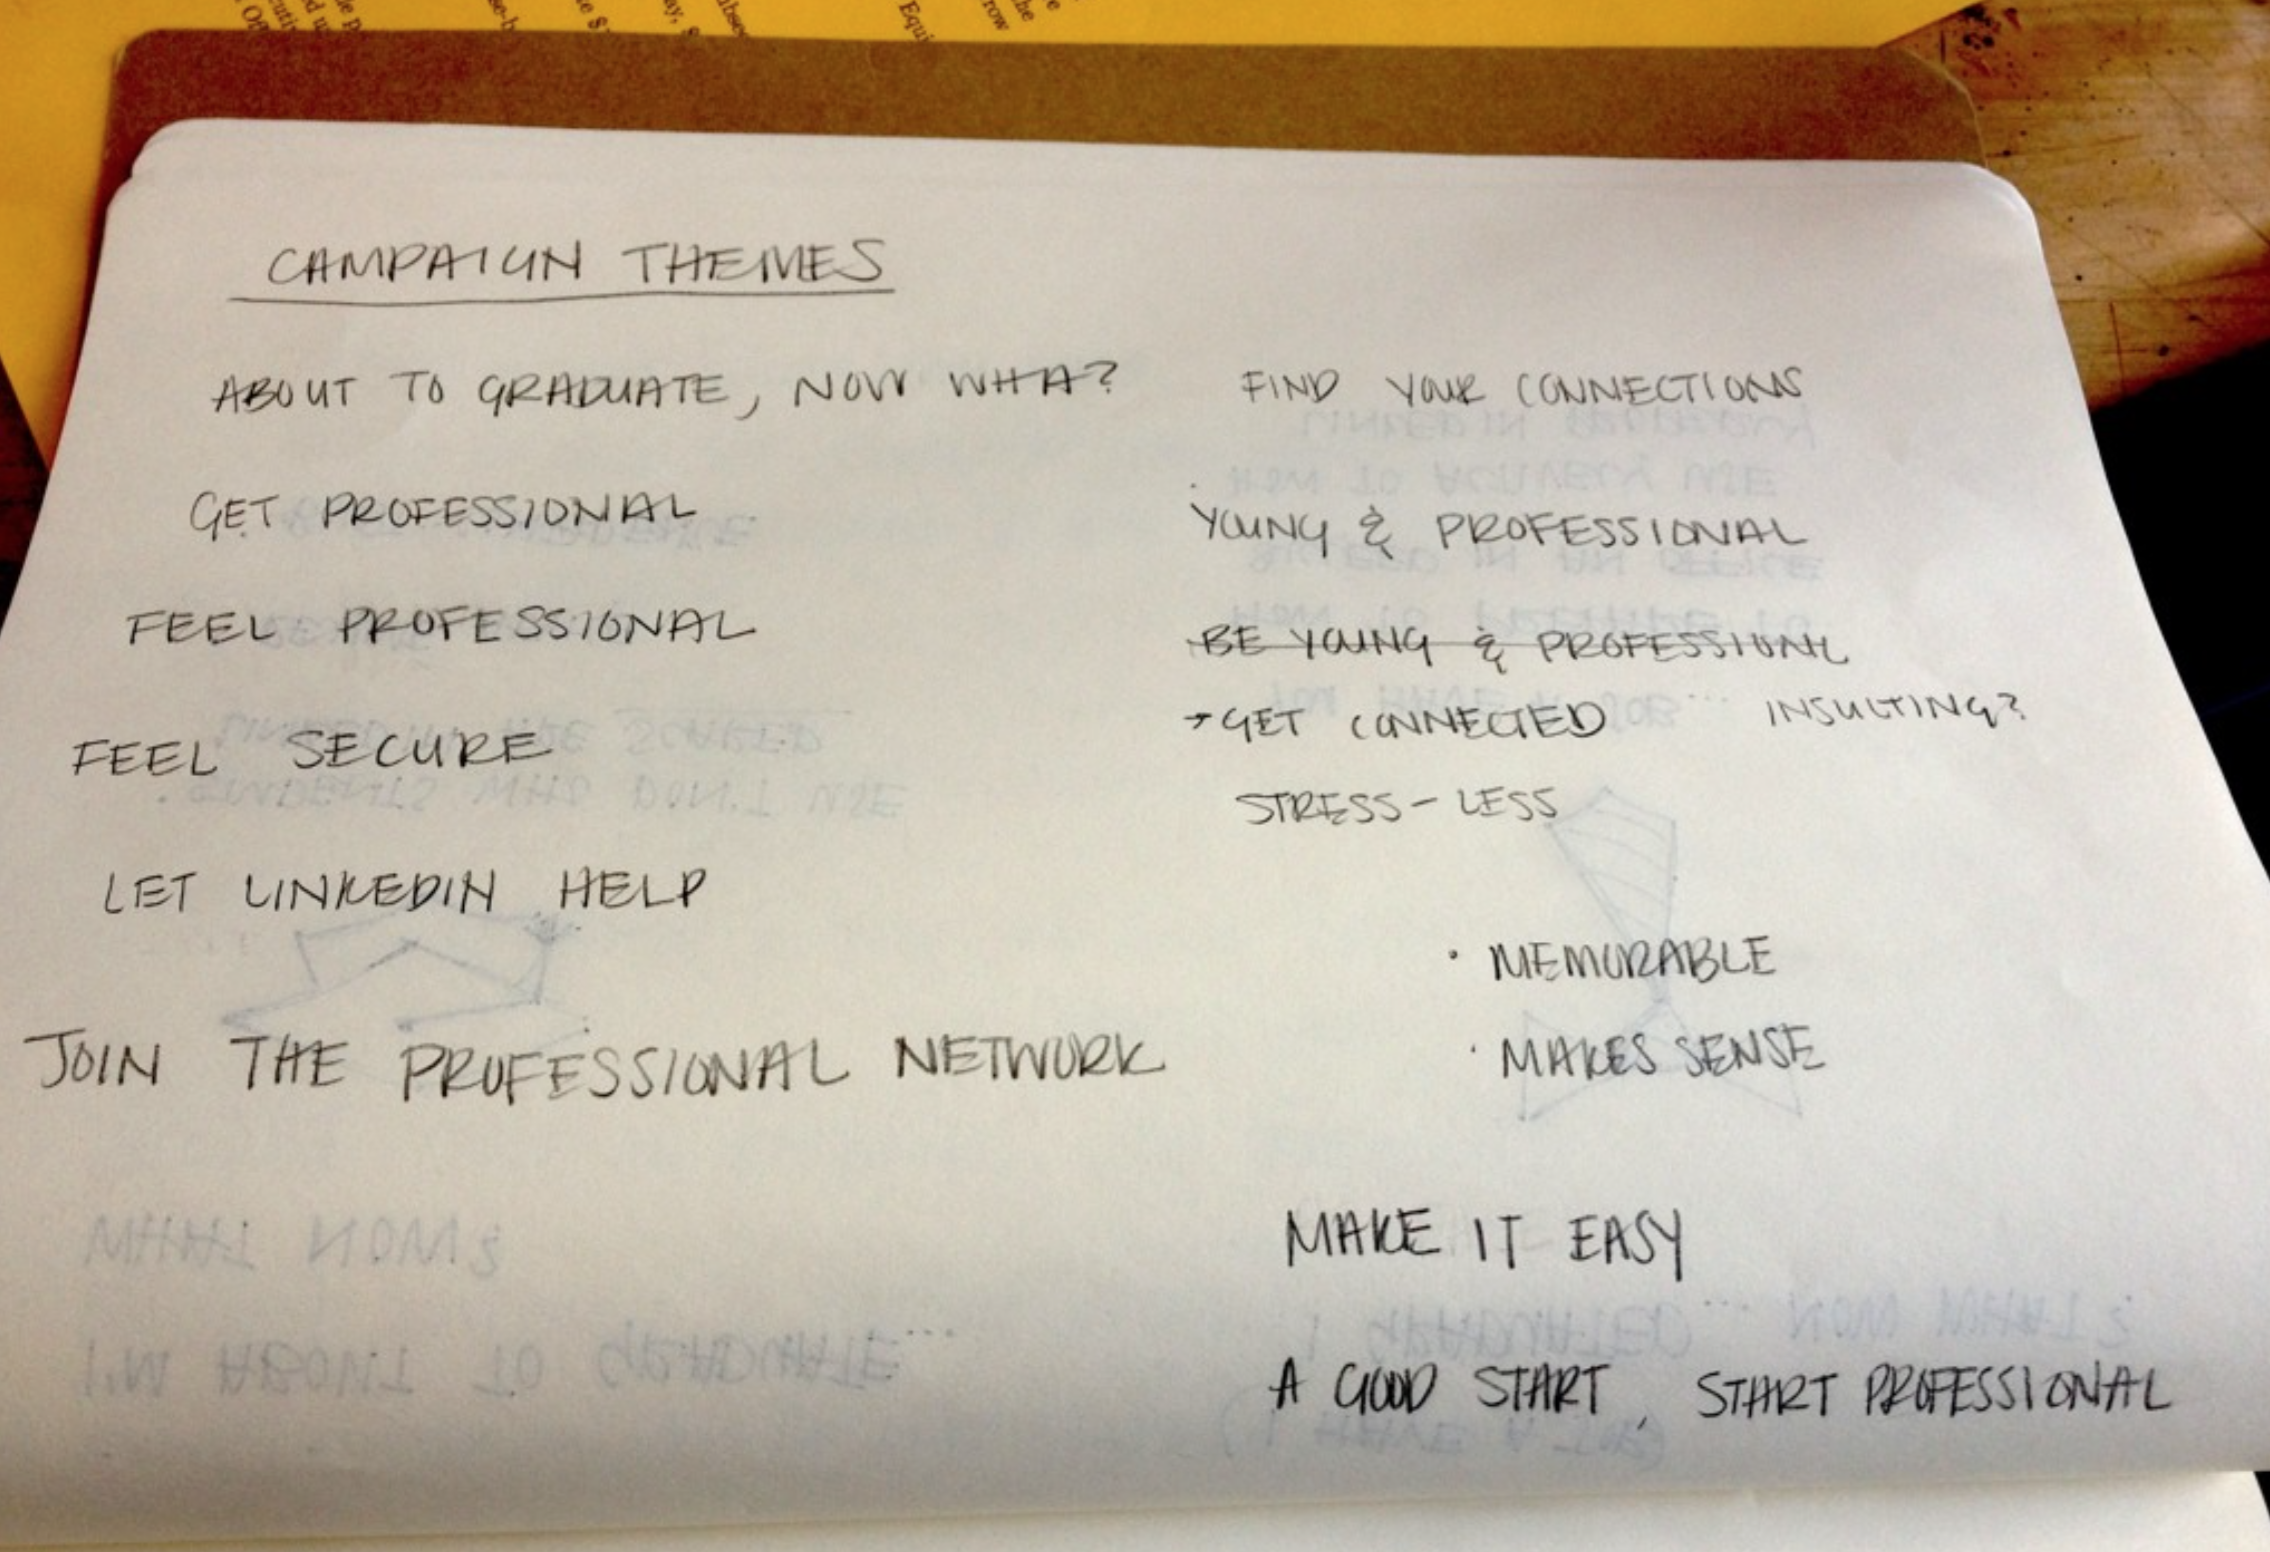 CAMPAIGN THEMES
ABOUT TO GRADUATE, NOW WHA?
GET PROFESSIONAL
FEEL PROFESSIONAL
FEEL SECURE
LET LINKEDIN HELP
JOIN THE PROFESSIONAL NETWORK
FIND YOUR CONNECTIONS
YOUNG & PROFESSIONAL
BE YOUNG & PROFESSIONL
→GET CONNECTED INSULTING?
STRESS-LESS
· MEMORABLE
· MAKES SENSE
MAKE IT EASY
A GOOD START, START PROFESSIONAL
WHAT NOW?
I'M ABOUT TO GRADUATE...
I GRADUATED... NOW WHAT?